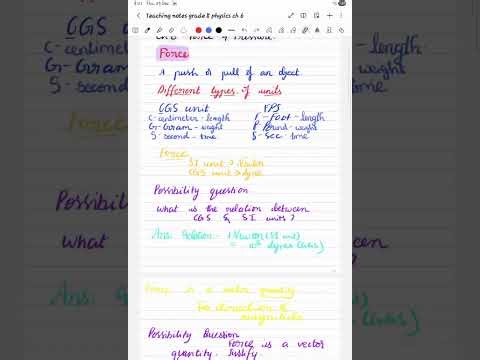 Teaching notes grade 8 physics ch 6
Force & Pressure
Force
A push or pull of an object.
Different types of units
CGS unit FPS
C-centimeter-length F-foot-length
G-Gram-weight P Pound-weight
S-second-time S-Sec-time
Force
SI unit → Newton
CGS unit → dyne
Possibility question
What is the relation between
CGS & SI units?
Ans: Relation - 1 Newton (SI unit)
= 10⁵ dynes (CGS)
Force is a vector quantity
direction &
magnitude
Possibility Question
Force is a vector
quantity. Justify.